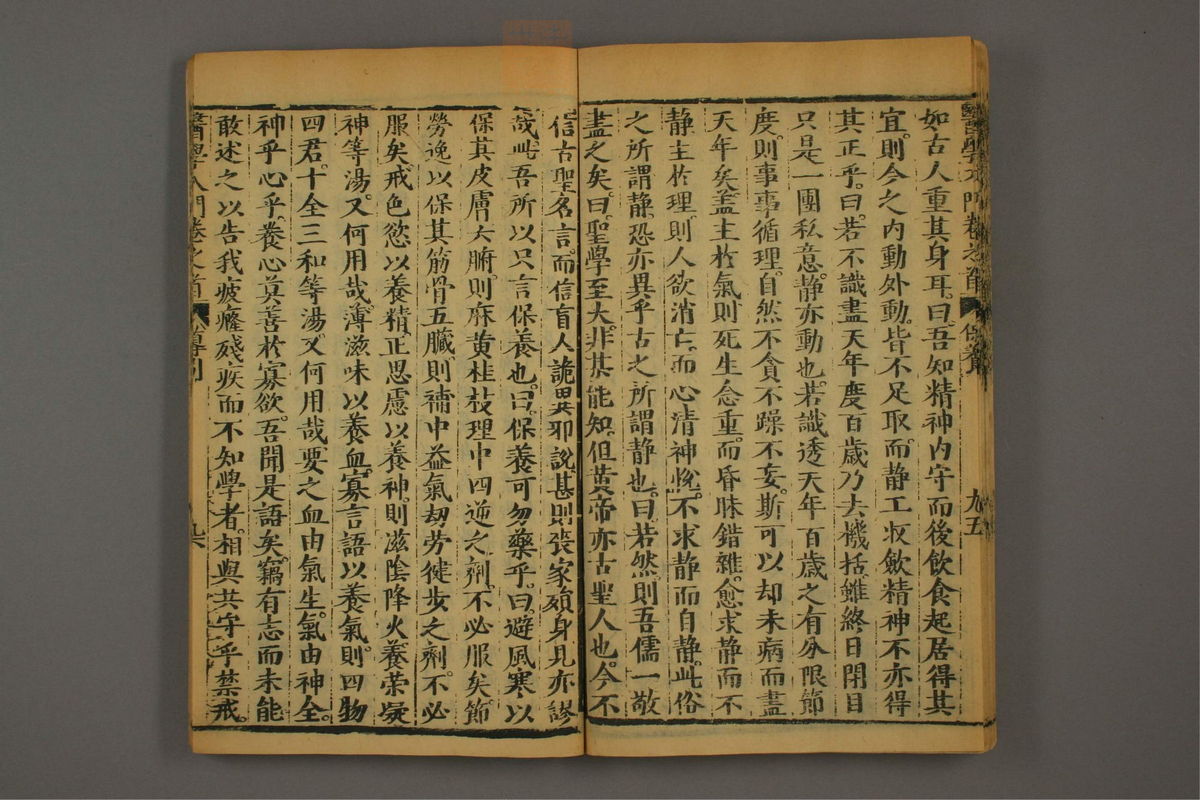 醫學入門卷之首 保養 九五
如古人重其身耳。曰吾知精神内守而後飲食起居得其
宜。則今之内動外動。皆不足取。而静工收斂精神不亦得
其正乎。曰。若不識盡天年度百歲乃去機括。雖終日閉目
只是一團私意。静亦動也。若識透天年百歲之有分限節
度。則事事循理。自然不貪不躁不妄。斯可以却未病而盡
天年矣。盖主於氣則死生念重。而昏昧錯雜。愈求静而不
静。主於理。則人欲消亡。而心清神悅。不求静而自静。此俗
之所謂静。恐亦異乎古之所謂静也。曰若然則吾儒一敬
盡之矣。曰。聖學至大。非某能知。但黄帝亦古聖人也。今不
信古聖名言。而信盲人詭異邪說。甚則張家殞身見亦謬
哉。此吾所以只言保養也。曰。保養可勿藥乎。曰。避風寒以
保其皮膚六腑。則麻黄桂枝理中四逆之劑。不必服矣。節
勞逸以保其筋骨五臟。則補中益氣劫勞健步之劑。不必
服矣。戒色慾以養精。正思慮以養神。則滋陰降火養荣凝
神等湯。又何用哉。薄滋味以養血。寡言語以養氣。則四物
四君。十全三和等湯。又何用哉。要之血由氣生。氣由神全。
神乎心乎。養心莫善於寡欲。吾聞是語矣。竊有志而未能
敢述之以告我疲癃殘疾而不知學者。相與共守乎禁戒。
醫學入門卷之首